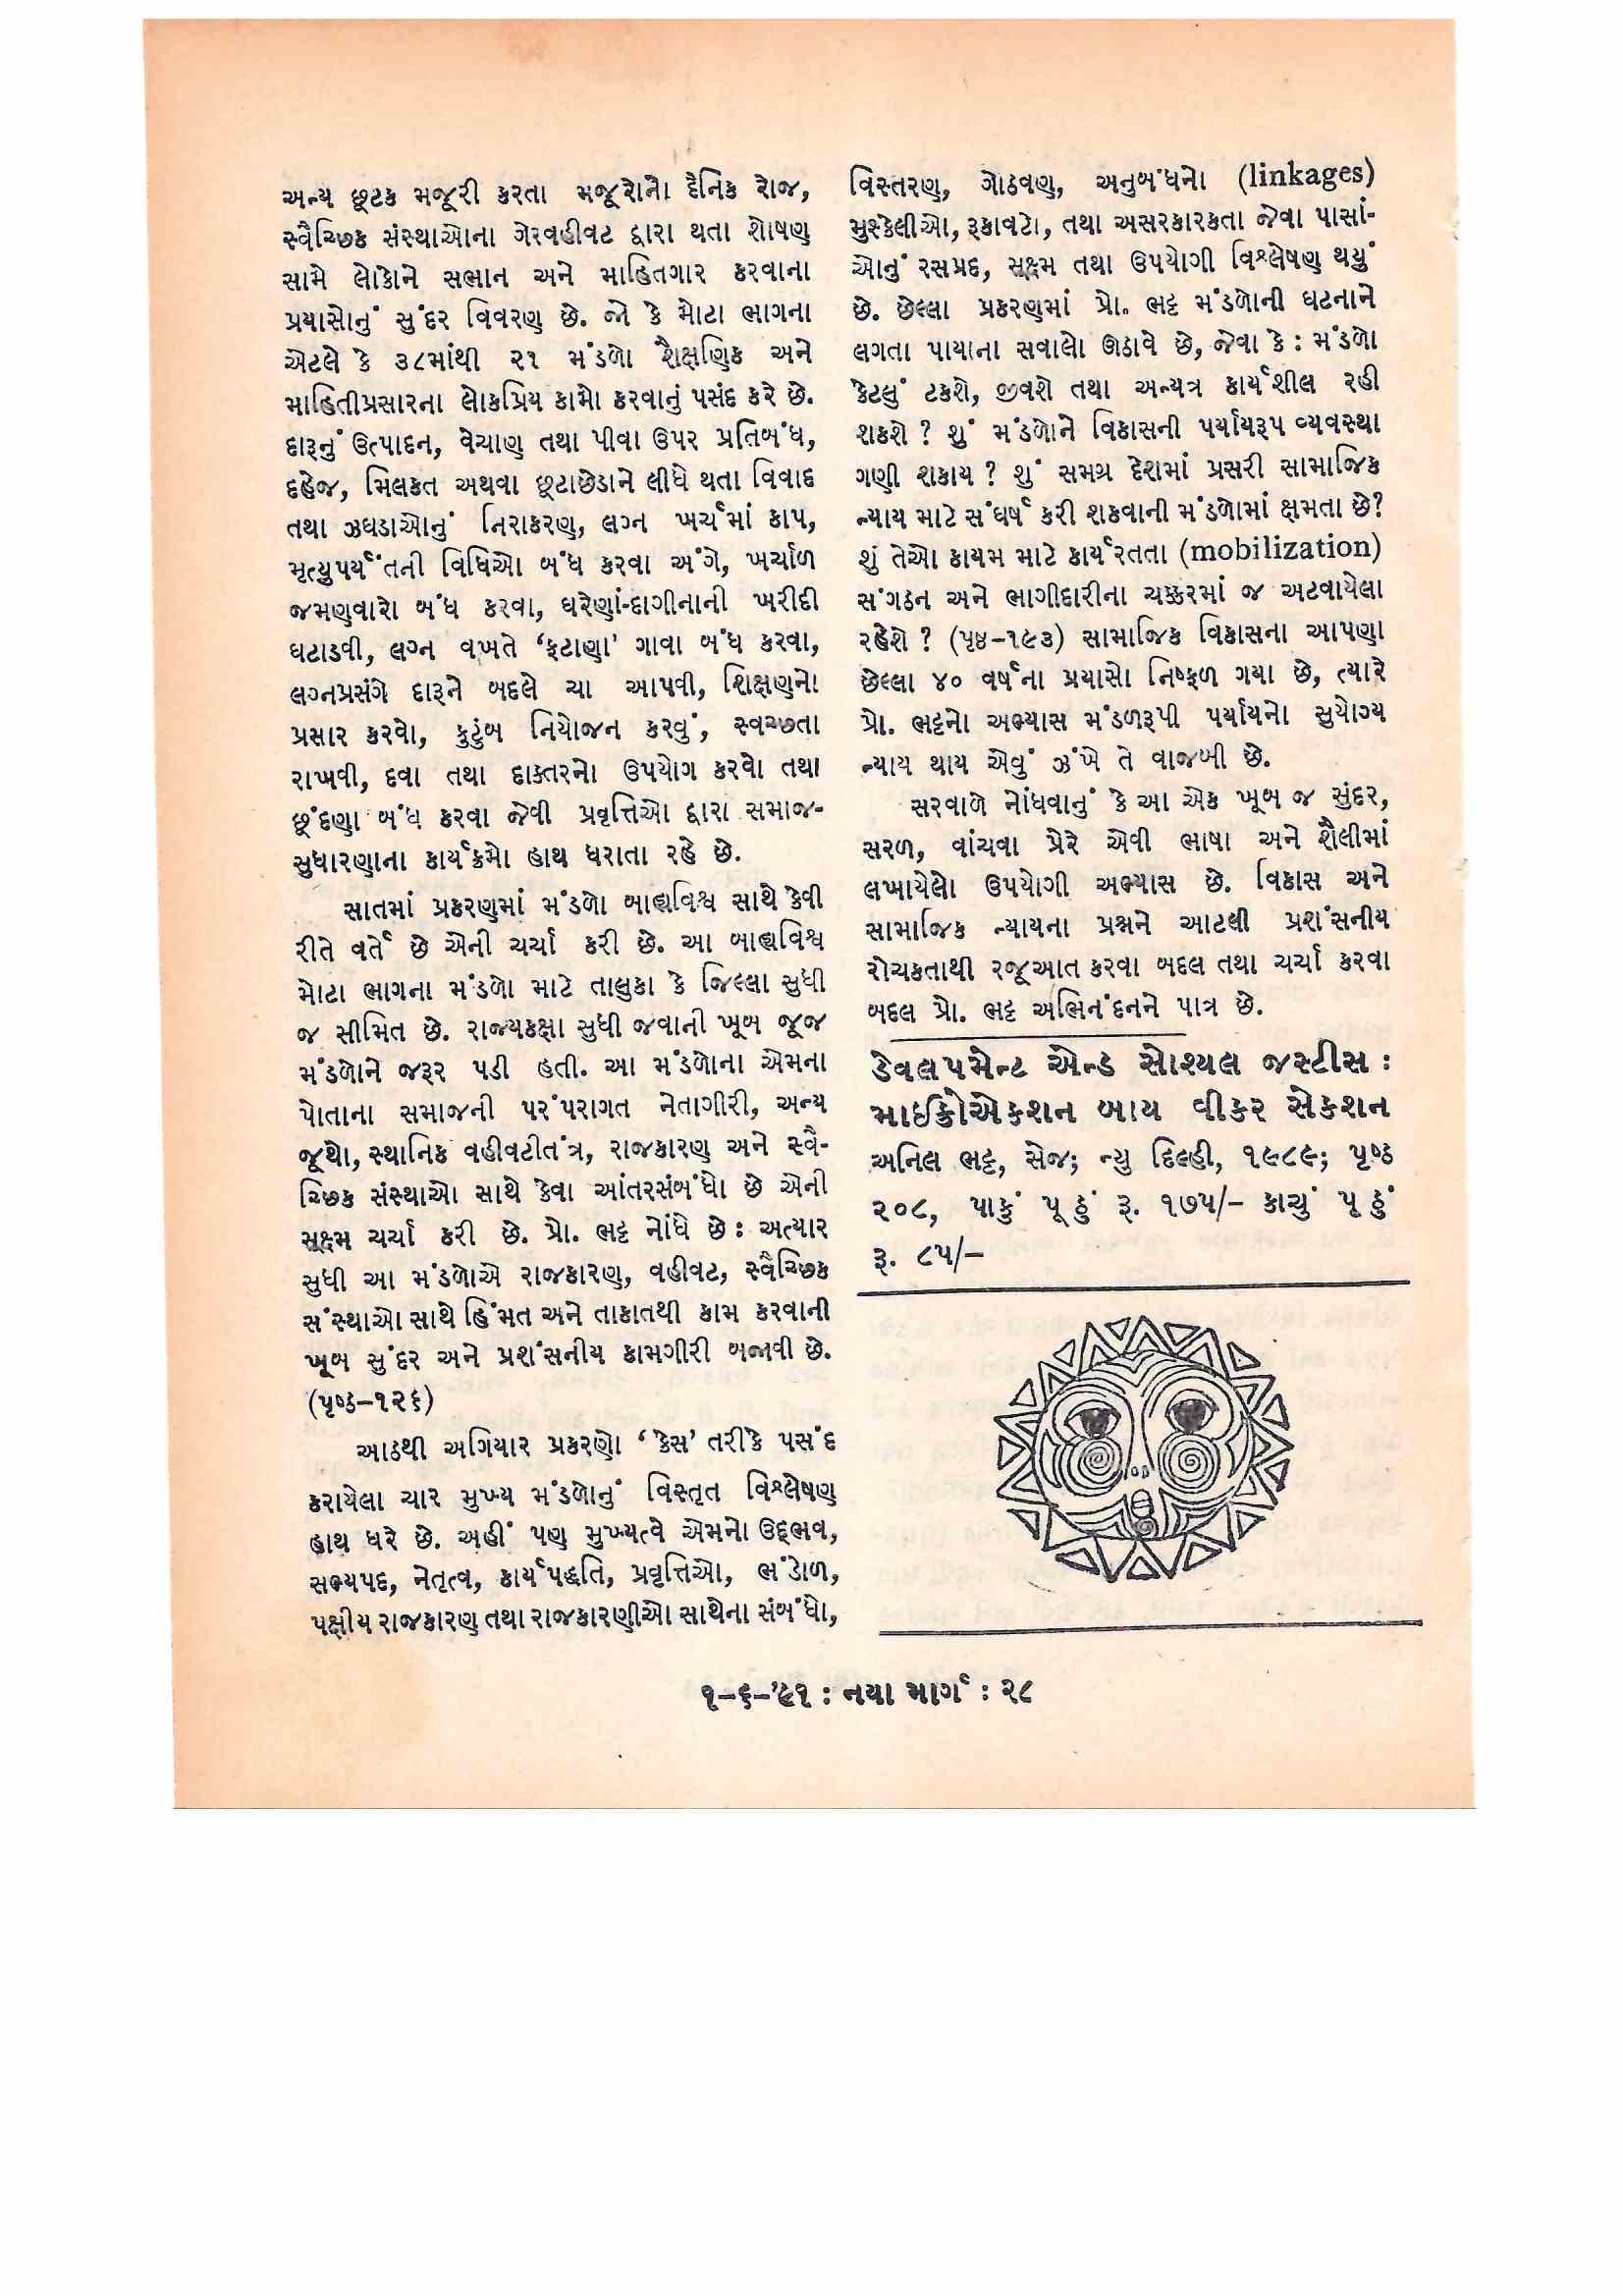 અન્ય છૂટક મજૂરી કરતા મજૂરોનો દૈનિક રોજ,
સ્વૈચ્છિક સંસ્થાઓના ગેરવહીવટ દ્વારા થતા શોષણ
સામે લોકોને સભાન અને માહિતગાર કરવાના
પ્રયાસોનું સુંદર વિવરણ છે. જો કે મોટા ભાગના
એટલે કે ૩૮માંથી ૨૧ મંડળો શૈક્ષણિક અને
માહિતીપ્રસારના લોકપ્રિય કામો કરવાનું પસંદ કરે છે.
દારૂનું ઉત્પાદન, વેચાણ તથા પીવા ઉપર પ્રતિબંધ,
દહેજ, મિલકત અથવા છૂટાછેડાને લીધે થતા વિવાદ
તથા ઝઘડાઓનું નિરાકરણ, લગ્ન ખર્ચમાં કાપ,
મૃત્યુપર્યંતની વિધિઓ બંધ કરવા અંગે, ખર્ચાળ
જમણવારો બંધ કરવા, ઘરેણાં-દાગીનાની ખરીદી
ઘટાડવી, લગ્ન વખતે ‘ફટાણા’ ગાવા બંધ કરવા,
લગ્નપ્રસંગે દારૂને બદલે ચા આપવી, શિક્ષણનો
પ્રસાર કરવો, કુટુંબ નિયોજન કરવું, સ્વચ્છતા
રાખવી, દવા તથા દાકતરનો ઉપયોગ કરવો તથા
છૂંદણા બંધ કરવા જેવી પ્રવૃત્તિઓ દ્વારા સમાજ-
સુધારણાના કાર્યક્રમો હાથ ધરાતા રહે છે.
સાતમાં પ્રકરણમાં મંડળો બાહ્યવિશ્વ સાથે કેવી
રીતે વર્તે છે એની ચર્ચા કરી છે. આ બાહ્યવિશ્વ
મોટા ભાગના મંડળો માટે તાલુકા કે જિલ્લા સુધી
જ સીમિત છે. રાજ્યકક્ષા સુધી જવાની ખૂબ જૂજ
મંડળોને જરૂર પડી હતી. આ મંડળોના એમના
પોતાના સમાજની પરંપરાગત નેતાગીરી, અન્ય
જૂથો, સ્થાનિક વહીવટીતંત્ર, રાજકારણ અને સ્વૈ-
ચ્છિક સંસ્થાઓ સાથે કેવા આંતરસંબંધો છે એની
સૂક્ષ્મ ચર્ચા કરી છે. પ્રો. ભટ્ટ નોંધે છે : અત્યાર
સુધી આ મંડળોએ રાજકારણ, વહીવટ, સ્વૈચ્છિક
સંસ્થાઓ સાથે હિંમત અને તાકાતથી કામ કરવાની
ખૂબ સુંદર અને પ્રશંસનીય કામગીરી બજાવી છે.
(પૃષ્ઠ–૧૨૬)
આઠથી અગિયાર પ્રકરણો ‘કેસ’ તરીકે પસંદ
કરાયેલા ચાર મુખ્ય મંડળોનું વિસ્તૃત વિશ્લેષણ
હાથ ધરે છે. અહીં પણ મુખ્યત્વે એમનો ઉદ્ભવ,
સભ્યપદ, નેતૃત્વ, કાર્યપદ્ધતિ, પ્રવૃત્તિઓ, ભંડોળ,
પક્ષીય રાજકારણ તથા રાજકારણીઓ સાથેના સંબંધો,
વિસ્તરણ, ગોઠવણ, અનુબંધનો (linkages)
મુશ્કેલીઓ, રૂકાવટો, તથા અસરકારકતા જેવા પાસાં-
ઓનું રસપ્રદ, સૂક્ષ્મ તથા ઉપયોગી વિશ્લેષણ થયું
છે. છેલ્લા પ્રકરણમાં પ્રો. ભટ્ટ મંડળોની ઘટનાને
લગતા પાયાના સવાલો ઊઠાવે છે, જેવા કે : મંડળો
કેટલું ટકશે, જીવશે તથા અન્યત્ર કાર્યશીલ રહી
શકશે ? શું મંડળોને વિકાસની પર્યાયરૂપ વ્યવસ્થા
ગણી શકાય ? શું સમગ્ર દેશમાં પ્રસરી સામાજિક
ન્યાય માટે સંઘર્ષ કરી શકવાની મંડળોમાં ક્ષમતા છે?
શું તેઓ કાયમ માટે કાર્યરતતા (mobilization)
સંગઠન અને ભાગીદારીના ચક્કરમાં જ અટવાયેલા
રહેશે ? (પૃષ્ઠ–૧૯૩) સામાજિક વિકાસના આપણા
છેલ્લા ૪૦ વર્ષના પ્રયાસો નિષ્ફળ ગયા છે, ત્યારે
પ્રો. ભટ્ટનો અભ્યાસ મંડળરૂપી પર્યાયનો સુયોગ્ય
ન્યાય થાય એવું ઝંખે તે વાજબી છે.
સરવાળે નોંધવાનું કે આ એક ખૂબ જ સુંદર,
સરળ, વાંચવા પ્રેરે એવી ભાષા અને શૈલીમાં
લખાયેલો ઉપયોગી અભ્યાસ છે. વિકાસ અને
સામાજિક ન્યાયના પ્રશ્નને આટલી પ્રશંસનીય
રોચકતાથી રજૂઆત કરવા બદલ તથા ચર્ચા કરવા
બદલ પ્રો. ભટ્ટ અભિનંદનને પાત્ર છે.
ડેવલપમેન્ટ એન્ડ સોશ્યલ જસ્ટીસ :
માઈક્રોએકશન બાય વીકર સેકશન
અનિલ ભટ્ટ, સેજ; ન્યુ દિલ્હી, ૧૯૮૯; પૃષ્ઠ
૨૦૮, પાકું પૂઠું રૂ. ૧૭૫/– કાચું પૂઠું
રૂ. ૮૫/–
૧–૬–’૯૧ : નયા માર્ગ : ૨૮